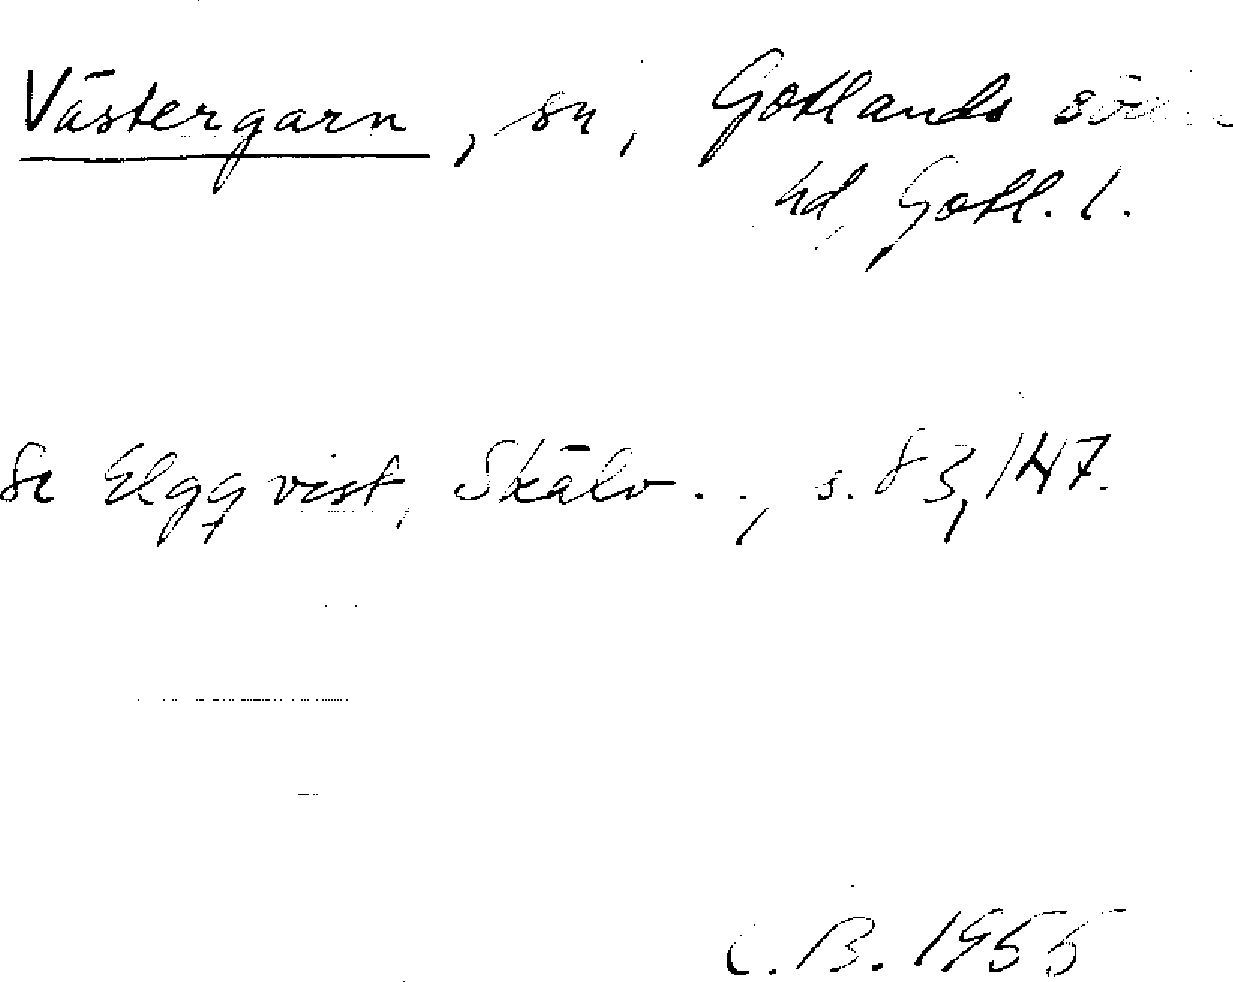 Västergarn, sn, Gotlands södra
hd, Gotl. l.
Se Elgqvist, Skälv.., s. 83, 147.
C.B. 1955